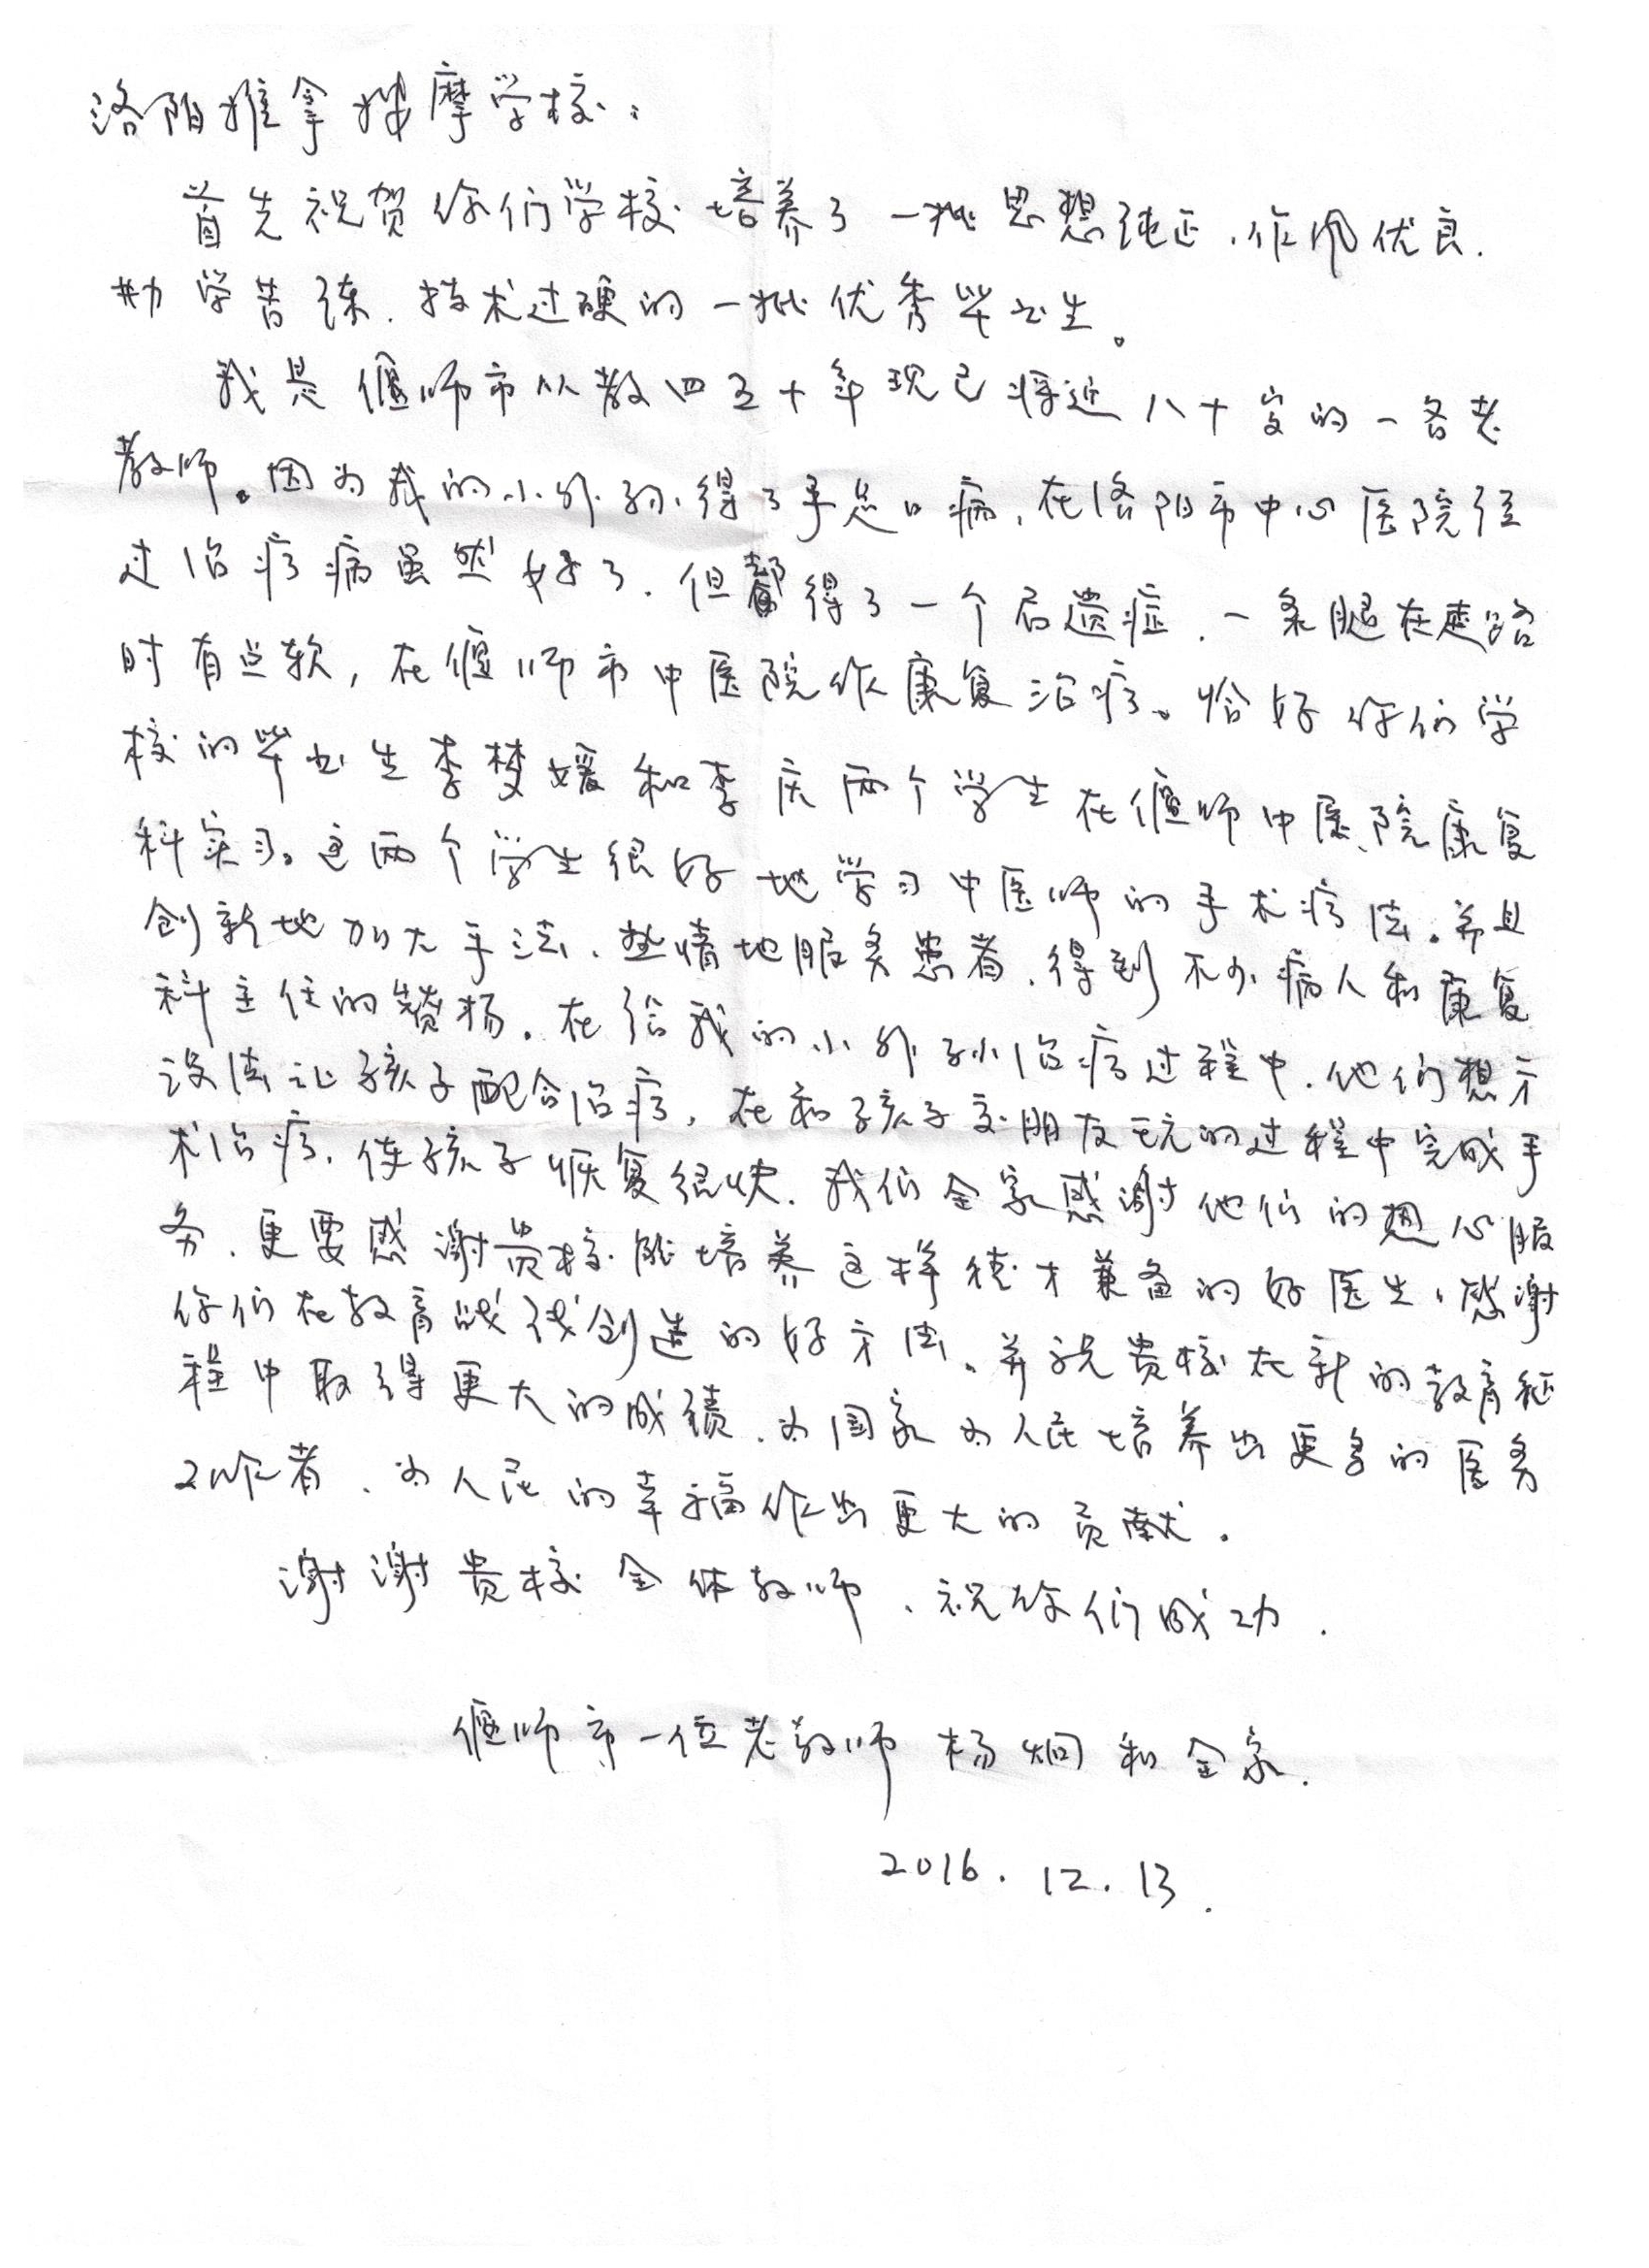 洛阳推拿按摩学校：
首先祝贺你们学校培养了一批思想纯正、作风优良.
勤学苦练.技术过硬的一批优秀毕业生。
我是偃师市从教四五十年现已将近八十岁的一名老
教师。因为我的小外孙得了手足口病,在洛阳市中心医院经
过治疗病虽然好了.但都得了一个后遗症.一条腿在走路
时有点软,在偃师市中医院作康复治疗。恰好你们学
校的毕业生李梦媛和李庆两个学生在偃师中医院康复
科实习。这两个学生很好地学习中医师的手术疗法。并且
创新地加大手法、热情地服务患者.得到不少病人和康复
科主任的赞扬.在给我的小外孙治疗过程中.他们想方
设法让孩子配合治疗,在和孩子交朋友玩的过程中完成手
术治疗.使孩子恢复很快.我们全家感谢他们的热心服
务.更要感谢贵校能培养这样德才兼备的好医生,感谢
你们在教育战线创造的好方法。并祝贵校在新的教育征
程中取得更大的成绩.为国家为人民培养出更多的医务
工作者、为人民的幸福作出更大的贡献.
谢谢贵校全体教师、祝你们成功.
偃师市一位老教师杨炯和全家.
2016.12.13.